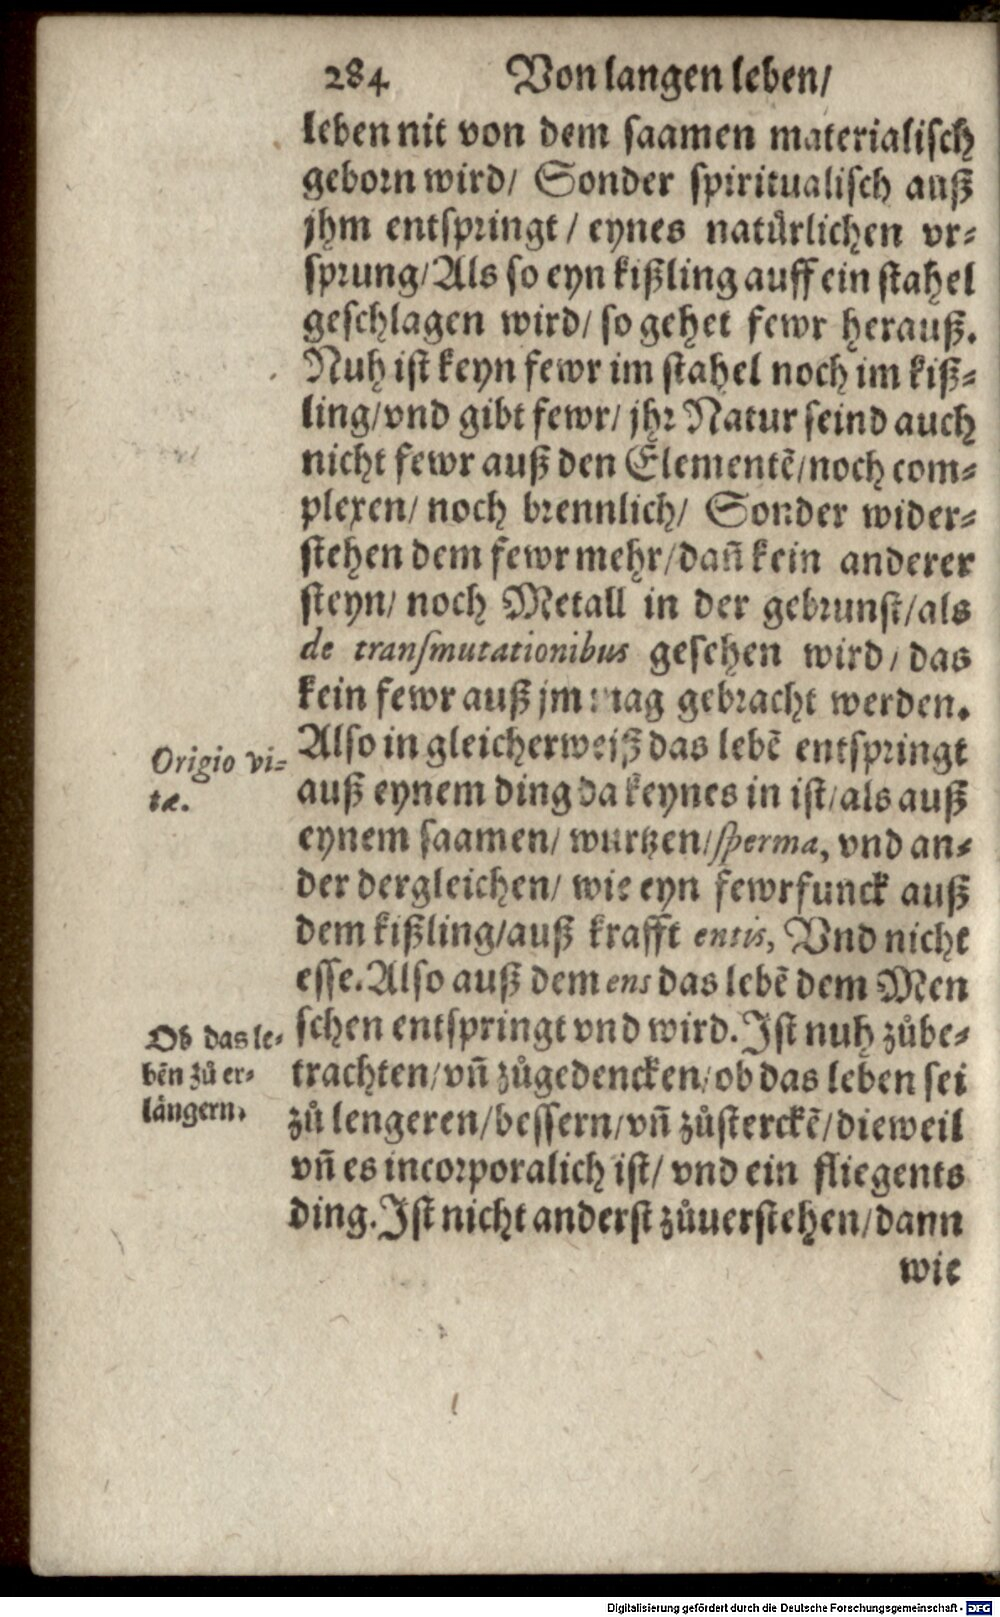 284 Von langen leben/
leben nit von dem saamen materialisch
geborn wird/ Sonder spiritualisch auß
jhm entspringt / eynes natuͤrlichen vr⸗
sprung/Als so eyn kißling auff ein stahel
geschlagen wird/ so gehet fewr herauß.
Nuh ist keyn fewr im stahel noch im kiß⸗
ling/vnd gibt fewr/ jhr Natur seind auch
nicht fewr auß den Elementẽ/noch com⸗
plexen/ noch brennlich/ Sonder wider⸗
stehen dem fewr mehr/dañ kein anderer
steyn/ noch Metall in der gebrunst/als
de transmutationibus gesehen wird/ das
kein fewr auß jm mag gebracht werden.
Origio vi⸗
tæ.
Also in gleicherweiß das lebẽ entspringt
auß eynem ding da keynes in ist/als auß
eynem saamen/ wurtzen/sperma, vnd an⸗
der dergleichen/ wie eyn fewrfunck auß
dem kißling/auß krafft entis, Vnd nicht
esse. Also auß dem ens das lebẽ dem Men
Ob das le⸗
bẽn zuͦ er⸗
laͤngern.
schen entspringt vnd wird. Ist nuh zuͦbe⸗
trachten/vñ zuͦgedencken/ob das leben sei
zuͦ lengeren/bessern/vñ zuͦsterckẽ/dieweil
vñ es incorporalich ist/ vnd ein fliegents
ding. Ist nicht anderst zuͦuerstehen/dann
wie
Digitalisierung gefördert durch die Deutsche Forschungsgemeinschaft - DFG